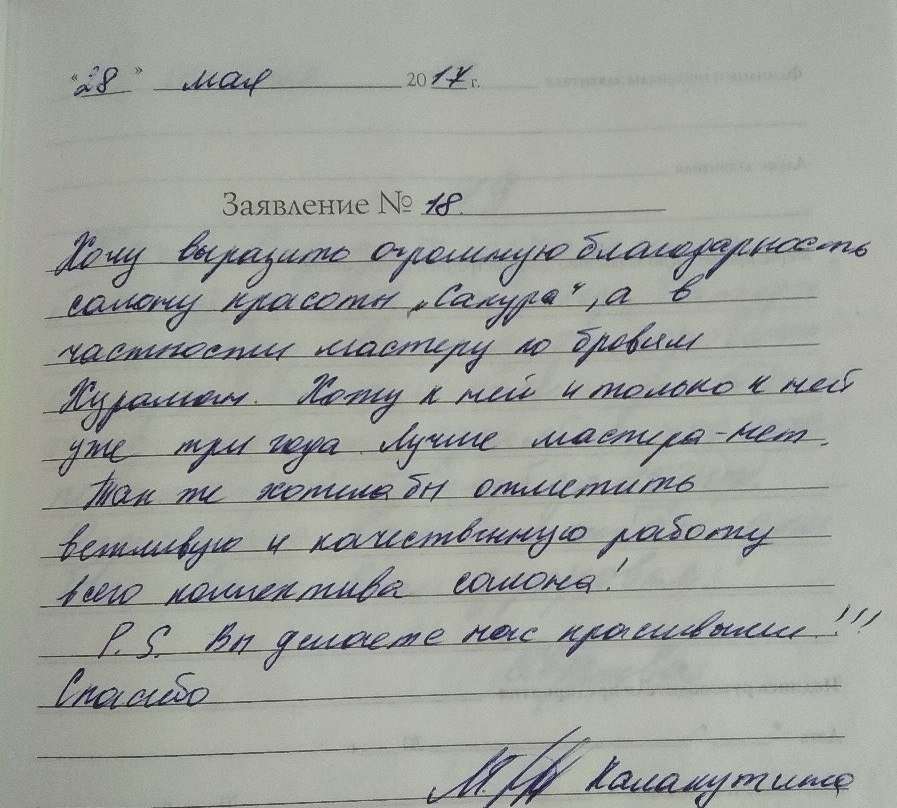 "28" мая 2017 г.
Заявление № 18.
Хочу выразить огромную благодарность
салону красоты „Сакура", а в
частности мастеру по бровям
Хожу к ней и только к ней
уже три года. Лучше мастера - нет.
Так же хотела бы отметить
вежливую и качественную работу
всего коллектива салона!
P.S. Вы делаете нас красивыми!!!
Спасибо